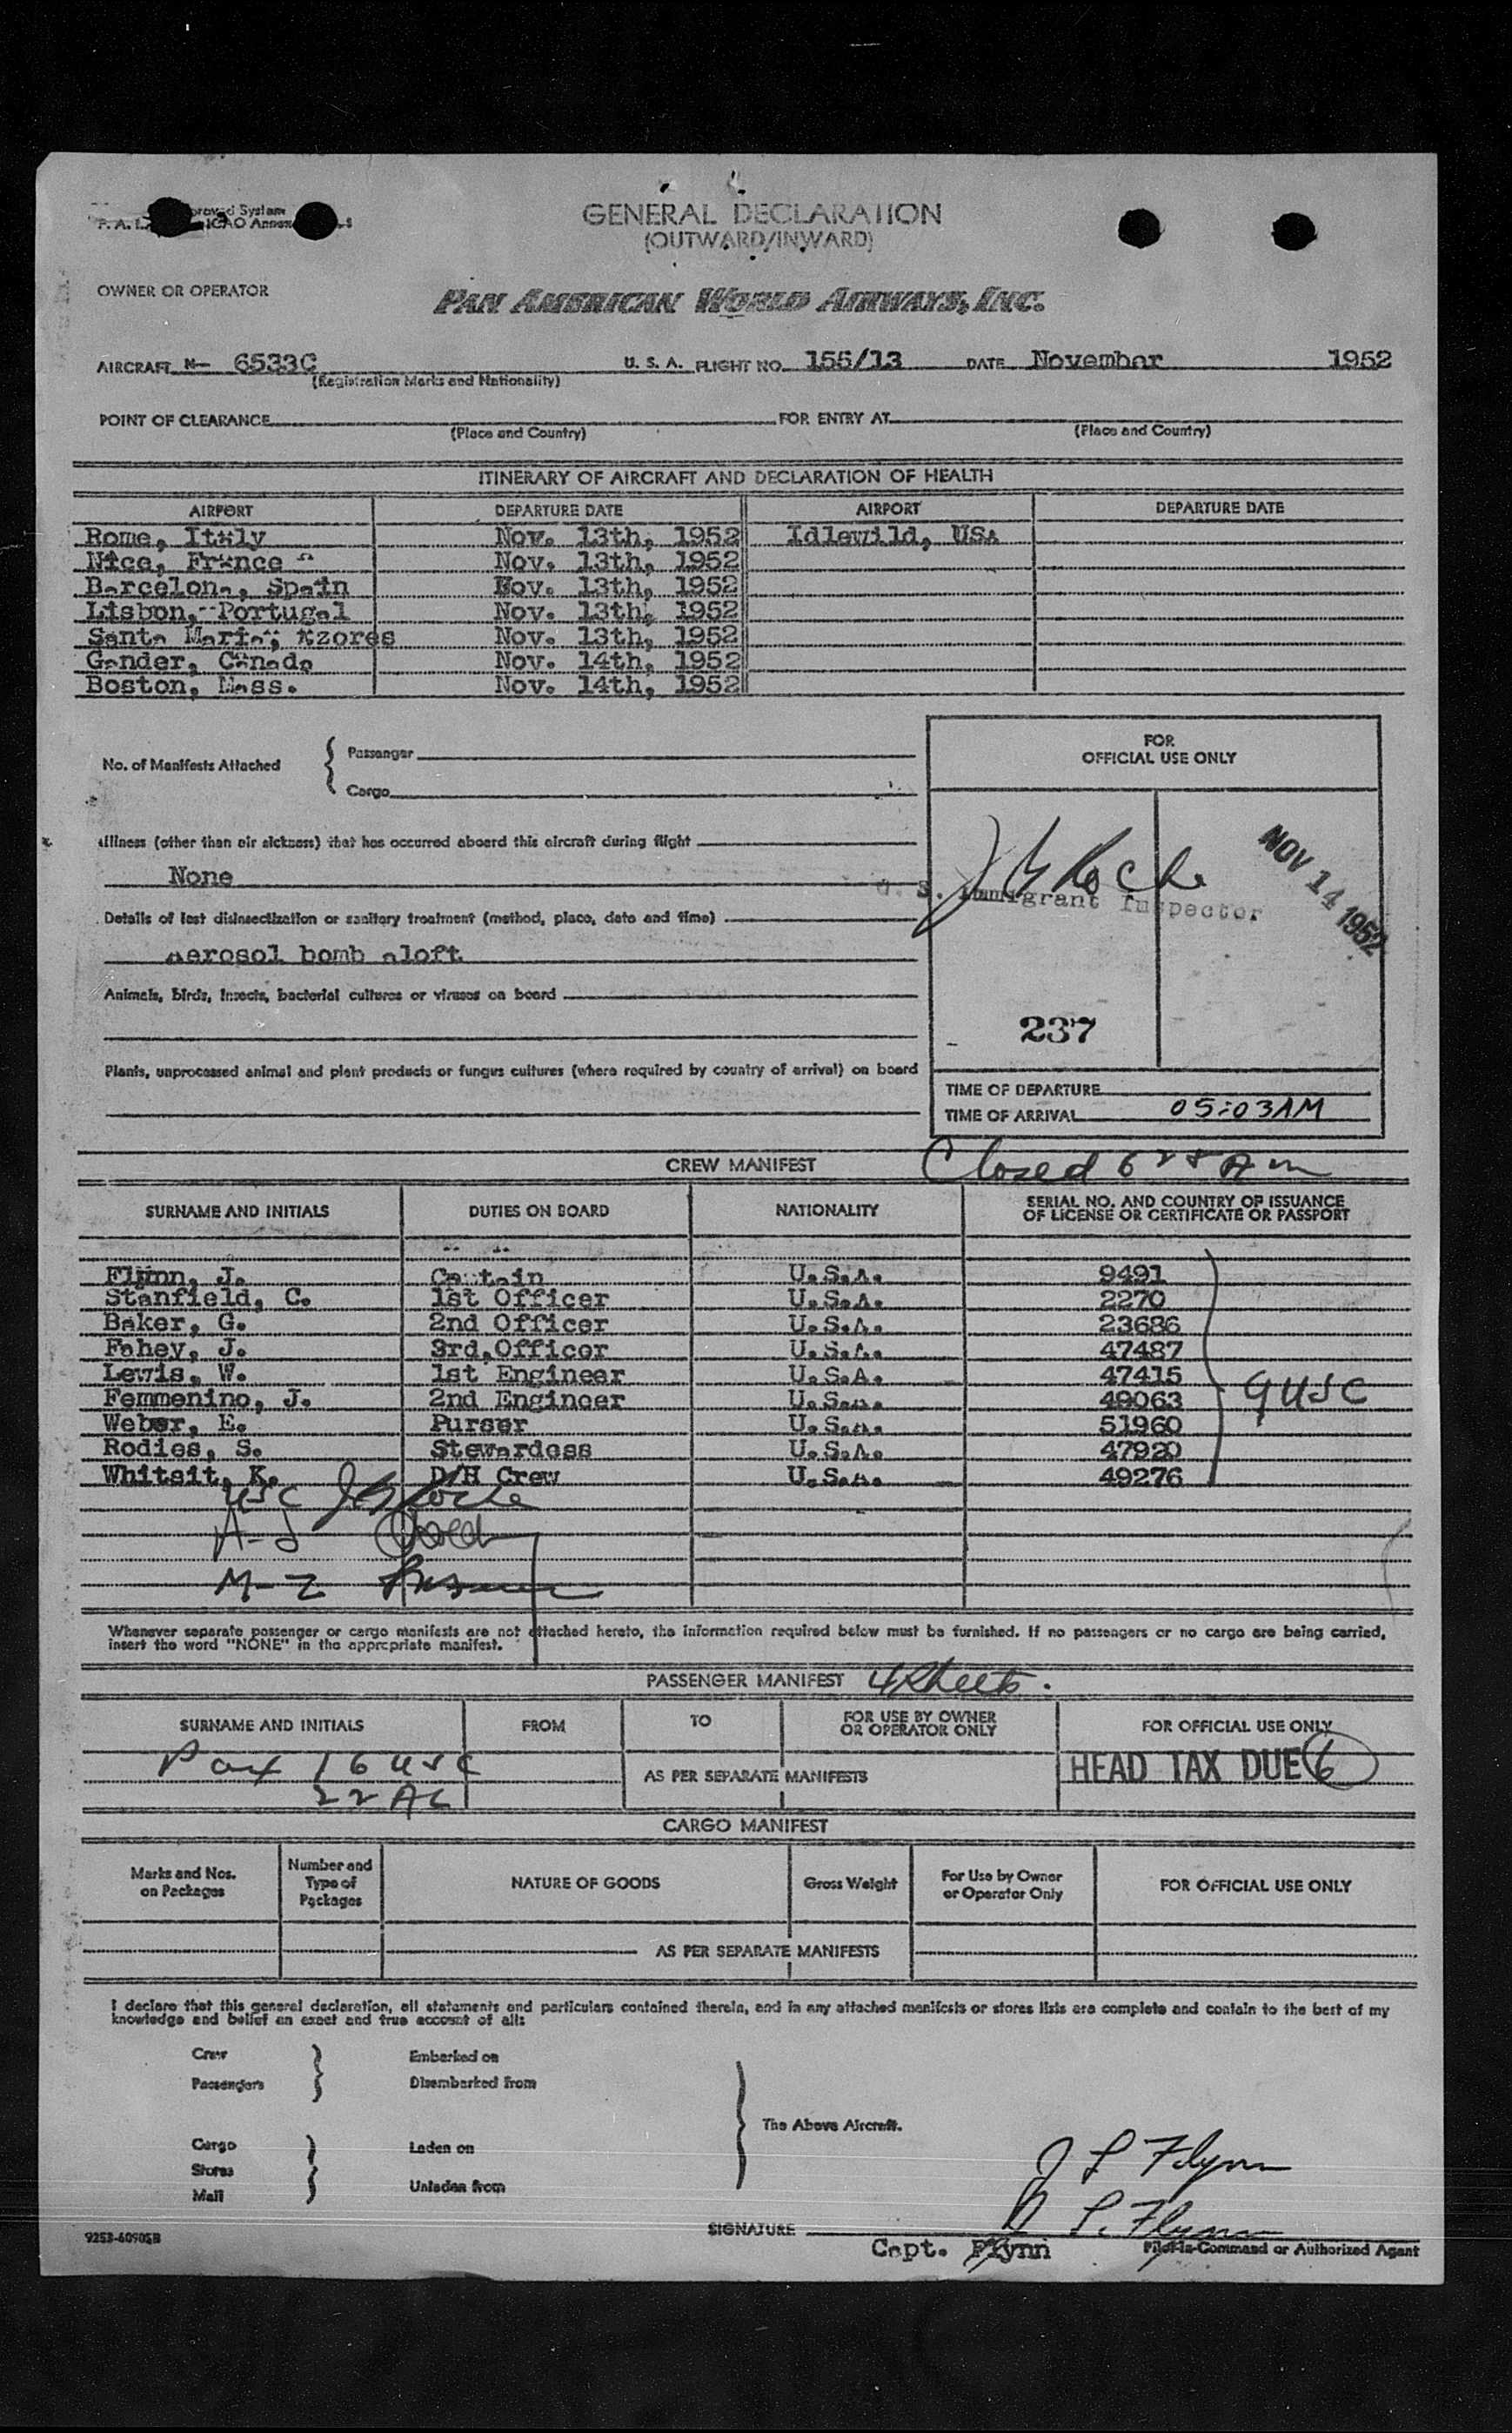 GENERAL DECLARATION
(OUTWARD/INWARD)
OWNER OR OPERATOR
PAN AMERICAN WORLD AIRWAYS, INC.
AIRCRAFT N- 6533C U. S. A. FLIGHT NO. 155/13 DATE November 1952
(Registration Marks and Nationality)
POINT OF CLEARANCE FOR ENTRY AT
(Place and Country) (Place and Country)
ITINERARY OF AIRCRAFT AND DECLARATION OF HEALTH
AIRPORT DEPARTURE DATE AIRPORT DEPARTURE DATE
Rome, Italy Nov. 13th, 1952 Idlewild, USA
Nice, France Nov. 13th, 1952
Barcelona, Spain Nov. 13th, 1952
Lisbon, Portugal Nov. 13th, 1952
Santa Maria, Azores Nov. 13th, 1952
Gander, Canada Nov. 14th, 1952
Boston, Mass. Nov. 14th, 1952
FOR
OFFICIAL USE ONLY
No. of Manifests Attached
Passenger
Cargo
Illness (other than air sickness) that has occurred aboard this aircraft during flight
None
U. S. Immigrant Inspector
NOV 14 1952
Details of last disinsectization or sanitary treatment (method, place, date and time)
Aerosol bomb aloft
Animals, birds, insects, bacterial cultures or viruses on board
237
Plants, unprocessed animal and plant products or fungus cultures (where required by country of arrival) on board
TIME OF DEPARTURE
TIME OF ARRIVAL 05:03AM
CREW MANIFEST Closed 625 Am
SURNAME AND INITIALS DUTIES ON BOARD NATIONALITY SERIAL NO. AND COUNTRY OF ISSUANCE
OF LICENSE OR CERTIFICATE OR PASSPORT
Flynn, J. Captain U.S.A. 9491
Stanfield, C. 1st Officer U.S.A. 2270
Baker, G. 2nd Officer U.S.A. 23686
Fahey, J. 3rd Officer U.S.A. 47487
Lewis, W. 1st Engineer U.S.A. 47415
Femmenino, J. 2nd Engineer U.S.A. 49063
9 USC
Weber, E. Purser U.S.A. 51960
Rodies, S. Stewardess U.S.A. 47920
Whitsit, K. D/H Crew U.S.A. 49276
USC
A-J
M-Z
Whenever separate passenger or cargo manifests are not attached hereto, the information required below must be furnished. If no passengers or no cargo are being carried,
insert the word "NONE" in the appropriate manifest.
PASSENGER MANIFEST 4 Sheets.
SURNAME AND INITIALS FROM TO FOR USE BY OWNER
OR OPERATOR ONLY FOR OFFICIAL USE ONLY
Pax 16 USC
AS PER SEPARATE MANIFESTS HEAD TAX DUE 6
22 AC
CARGO MANIFEST
Marks and Nos.
on Packages
Number and
Type of
Packages
NATURE OF GOODS Gross Weight
For Use by Owner
or Operator Only
FOR OFFICIAL USE ONLY
AS PER SEPARATE MANIFESTS
I declare that this general declaration, all statements and particulars contained therein, and in any attached manifests or stores lists are complete and contain to the best of my
knowledge and belief an exact and true account of all:
Crew Embarked on
Passengers Disembarked from
The Above Aircraft.
Cargo Laden on
Stores
Mail Unladen from
J L Flynn
SIGNATURE
Capt. Flynn Pilot-in-Command or Authorized Agent
9253-60905B